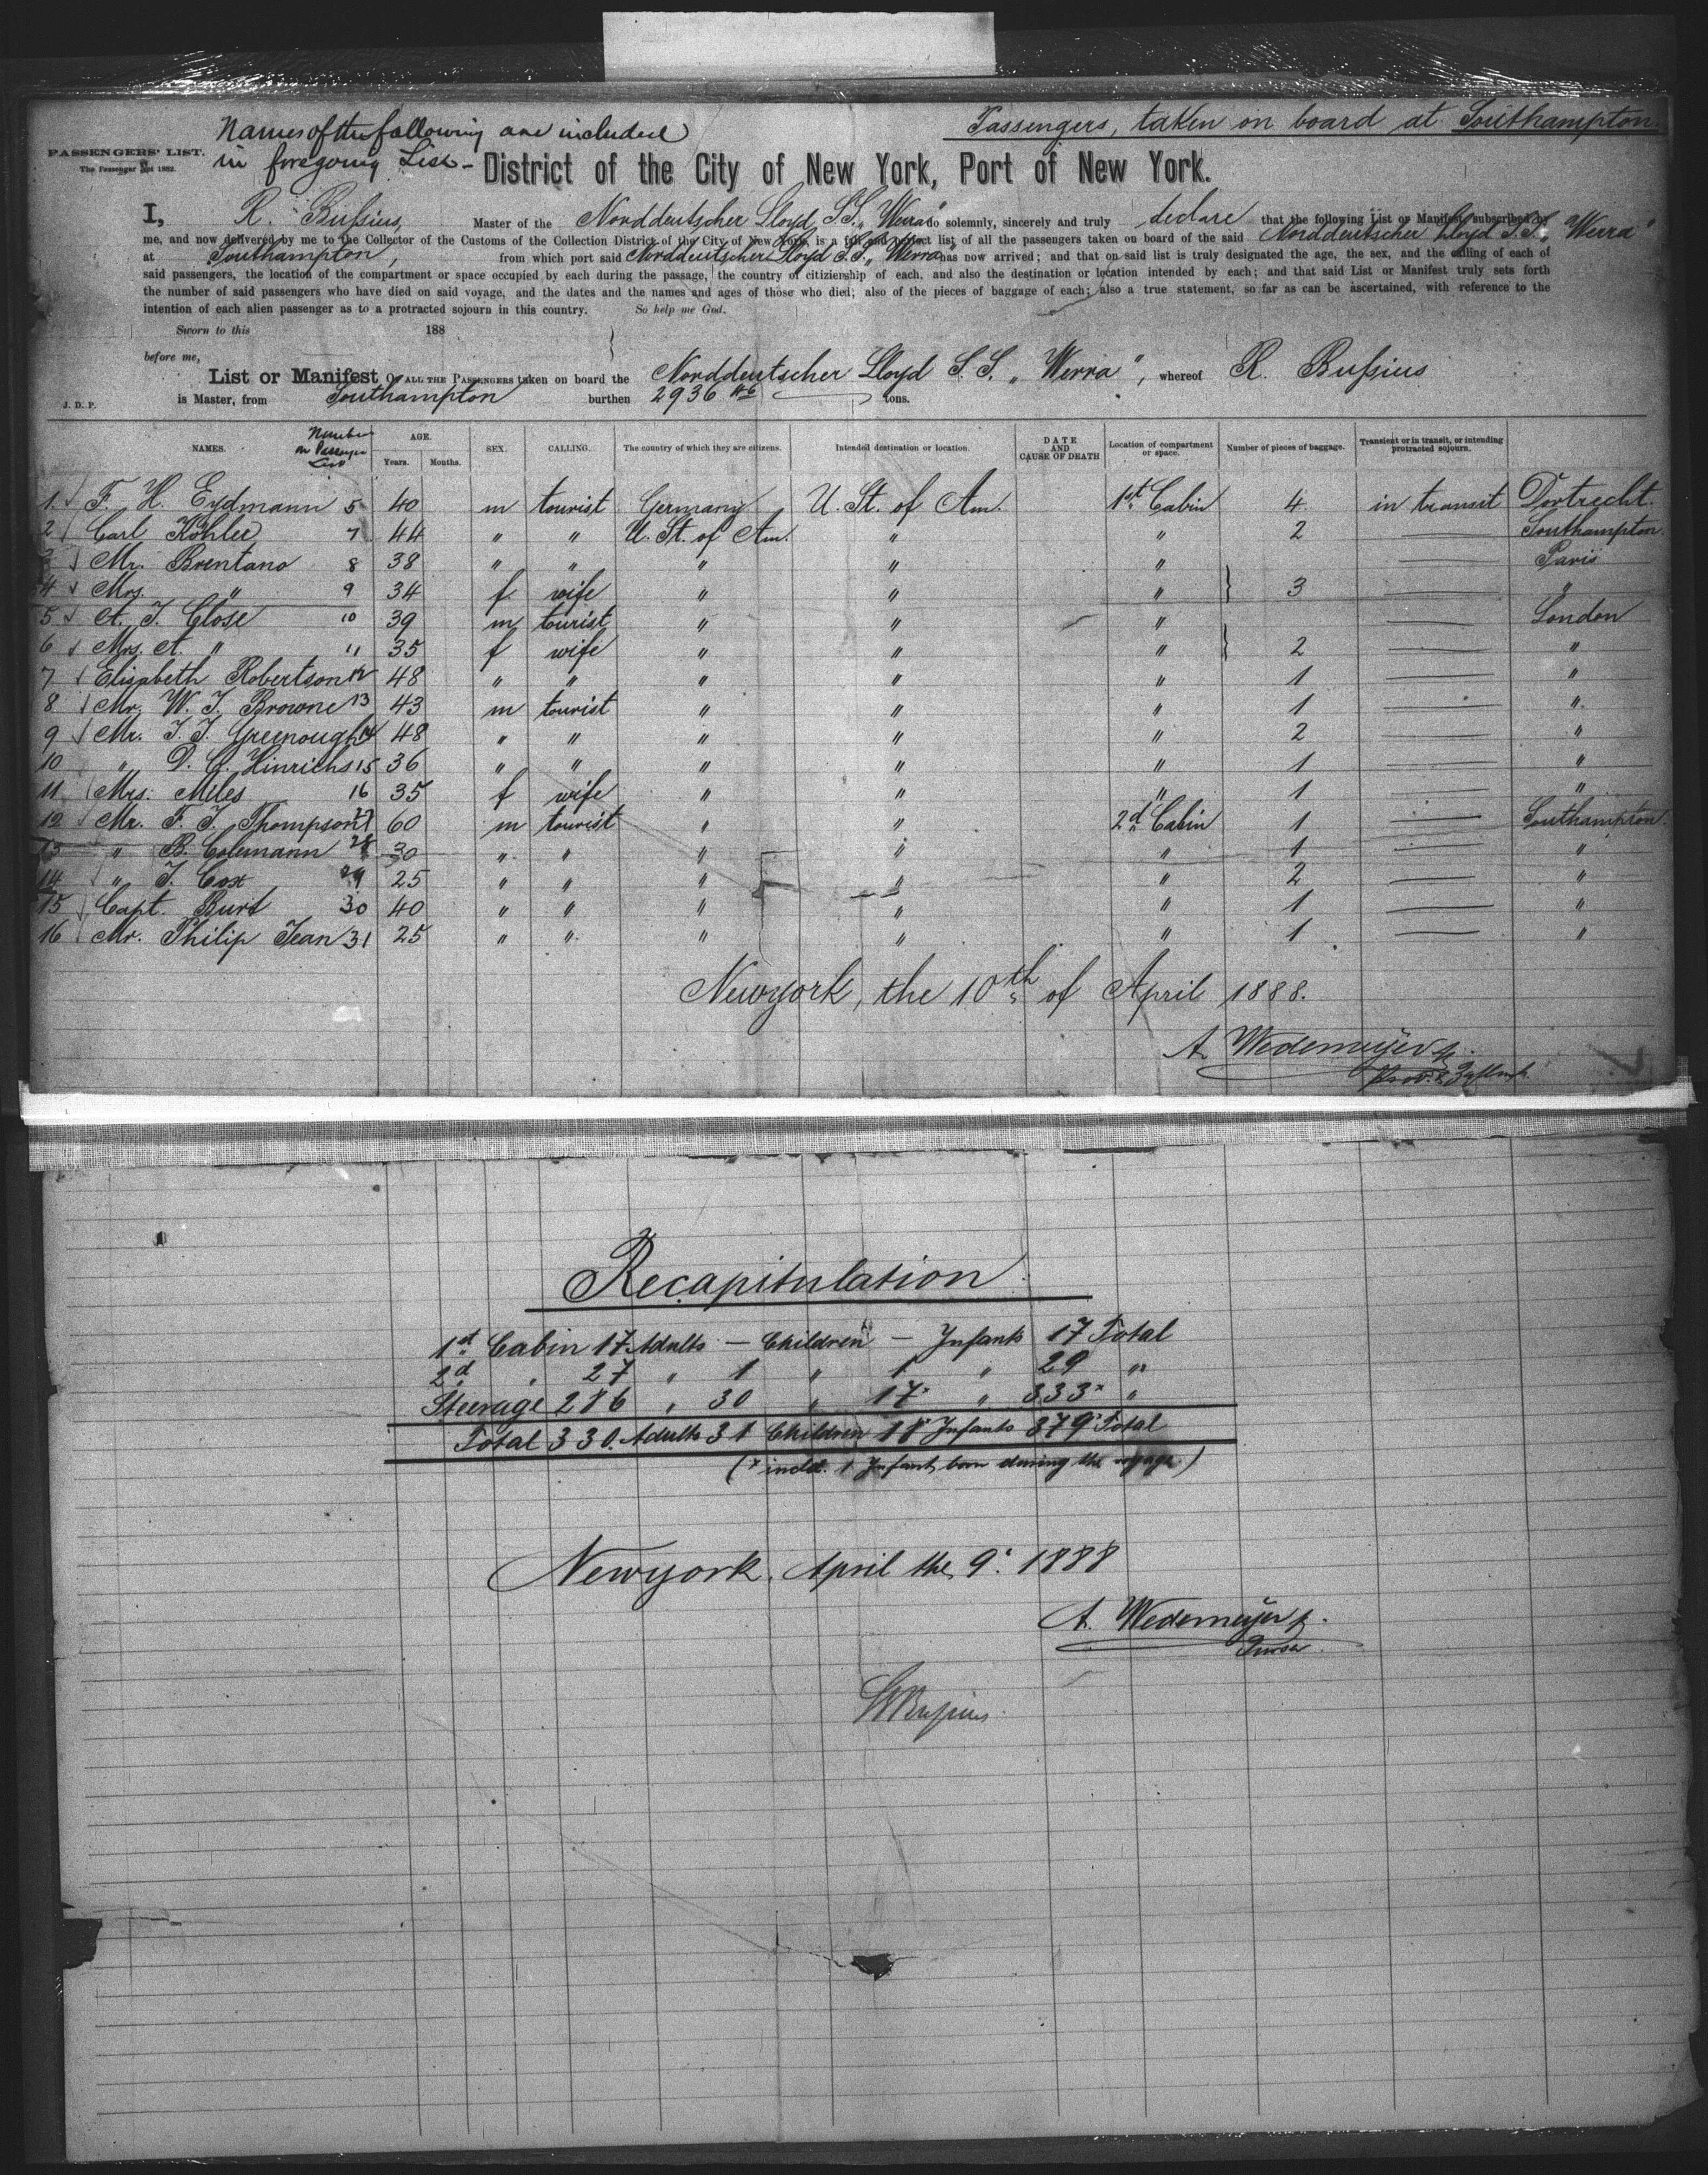 Names of the following are included
in foregoing List -
Passengers, taken on board at Southampton.
PASSENGERS' LIST.
The Passenger Act 1882.
District of the City of New York, Port of New York.
I, R. Bussius, Master of the Norddeutscher Lloyd S.S. „Werra" do solemnly, sincerely and truly declare that the following List or Manifest subscribed by
me, and now delivered by me to the Collector of the Customs of the Collection District of the City of New York, is a full and perfect list of all the passengers taken on board of the said Norddeutscher Lloyd S.S. „Werra"
at Southampton, from which port said Norddeutscher Lloyd S.S. „Werra" has now arrived; and that on said list is truly designated the age, the sex, and the calling of each of
said passengers, the location of the compartment or space occupied by each during the passage, the country of citiziership of each, and also the destination or location intended by each; and that said List or Manifest truly sets forth
the number of said passengers who have died on said voyage, and the dates and the names and ages of those who died; also of the pieces of baggage of each; also a true statement, so far as can be ascertained, with reference to the
intention of each alien passenger as to a protracted sojourn in this country. So help me God.
Sworn to this 188
before me,
List or Manifest OF ALL THE PASSENGERS taken on board the Norddeutscher Lloyd S.S. „Werra", whereof R. Bussius
J. D. P. is Master, from Southampton burthen 2936 tons.
NAMES. Number on Passenger List AGE. Years. Months. SEX. CALLING. The country of which they are citizens. Intended destination or location. DATE AND CAUSE OF DEATH Location of compartment or space. Number of pieces of baggage. Transient or in transit, or intending protracted sojourn.
1 F. H. Eydmann 5 40 m tourist Germany U. St. of Am. 1st Cabin 4 in transit Dortrecht.
2 Carl Köhler 7 44 " " U. St. of Am. " " 2 — Southampton.
3 Mr. Brentano 8 38 " " " " " — Paris
4 Mrs. " 9 34 f. wife " " " } 3 — "
5 A. J. Close 10 39 m tourist " " " London
6 Mrs. A. " 11 35 f wife " " " } 2 — "
7 Elizabeth Robertson 12 48 " " " " " 1 — "
8 Mr. W. J. Browne 13 43 m tourist " " " 1 — "
9 Mr. J. J. Greenough 14 48 " " " " " 2 — "
10 " D. C. Hinrichs 15 36 " " " " " 1 — "
11 Mrs. Miles 16 35 f wife " " " 1 — "
12 Mr. F. J. Thompson 27 60 m tourist " " 2d Cabin 1 — Southampton.
13 " B. Colemann 28 30 " " " " " 1 — "
14 " J. Cox 29 25 " " " " " 2 — "
15 Capt. Burt 30 40 " " " " " 1 — "
16 Mr. Philip Jean 31 25 " " " " " 1 — "
Newyork, the 10th of April 1888.
A. Wedemeyer jr.
Recapitulation
1st Cabin 17 Adults — Children — Infants 17 Total
2d " 27 " 1 " 1 " 29 "
Steerage 286 " 30 " 17* " 333* "
Total 330 Adults 31 Children 18* Infants 379* Total
(* incld. 1 Infant born during the voyage)
Newyork, April the 9. 1888
A. Wedemeyer jr.
Purser
RBussius